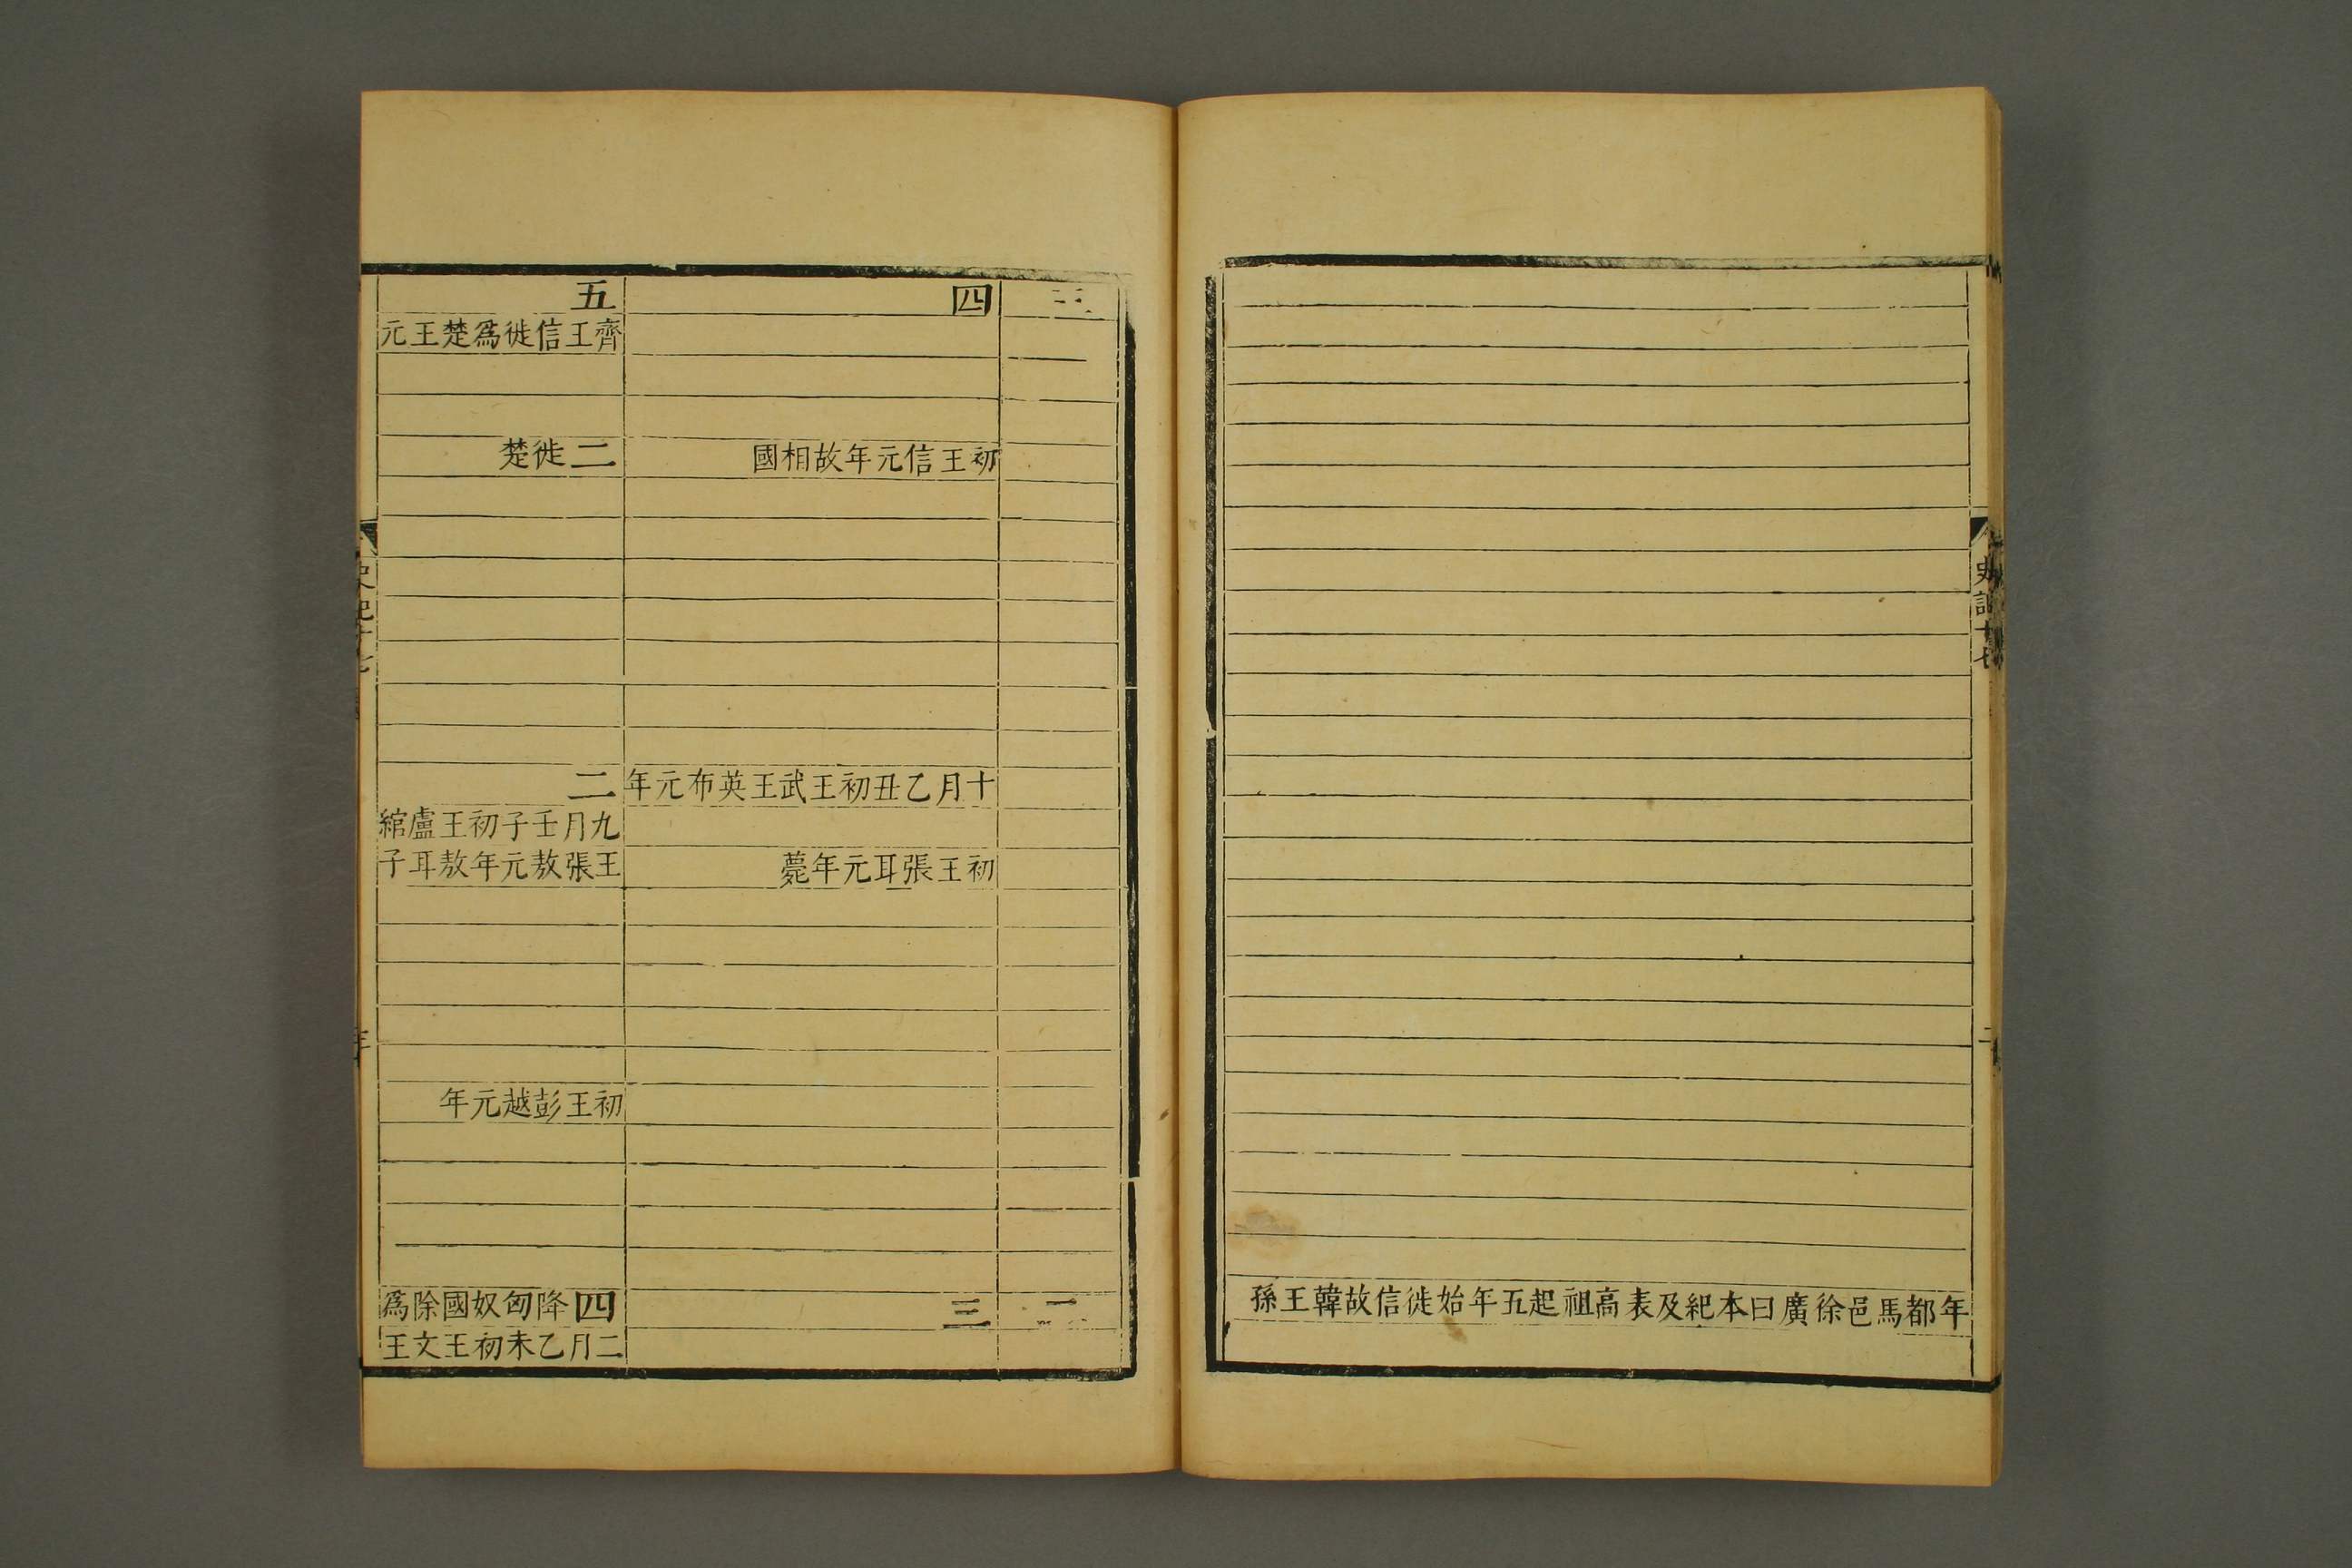 年都馬邑徐廣曰本紀及表高祖起五年始徙信故韓王孫
史記十七
二
三
二
四
初王信元年故相國
十月乙丑初王武王英布元年
初王張耳元年薨
三
五
齊王信徙爲楚王元
二徙楚
二
九月壬子初王盧綰
王張敖元年敖耳子
初王彭越元年
四降匈奴國除爲
二月乙未初王文王